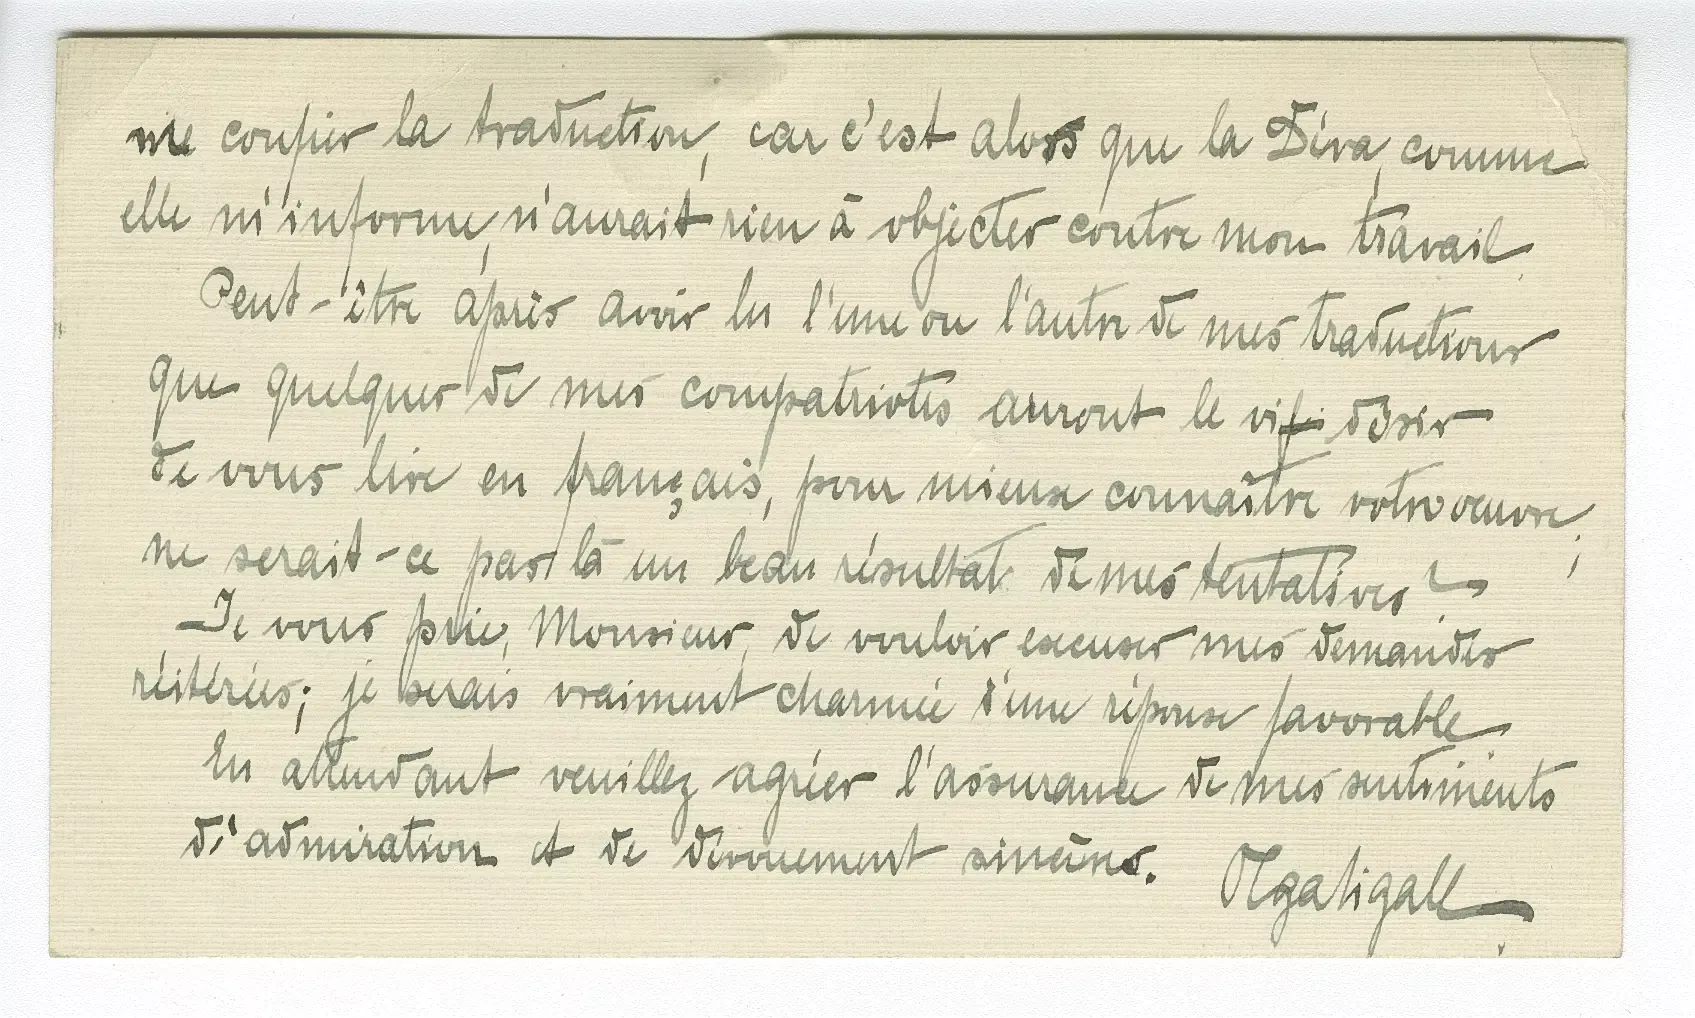 me confier la traduction, car c'est alors que la Diva, comme
elle m'informe, n'aurait rien à objecter contre mon travail.
Peut-être après avoir lu l'une ou l'autre de mes traductions
que quelques de mes compatriotes auront le vif désir
de vous lire en français, pour mieux connaître votre oeuvre;
ne serait-ce pas là un beau résultat de mes tentatives?
Je vous prie, Monsieur, de vouloir excuser mes demandes
réitérées; je serais vraiment charmée d'une réponse favorable
En attendant veuillez agréer l'assurance de mes sentiments
d'admiration et de dévouement sincères.
Olga Sigall